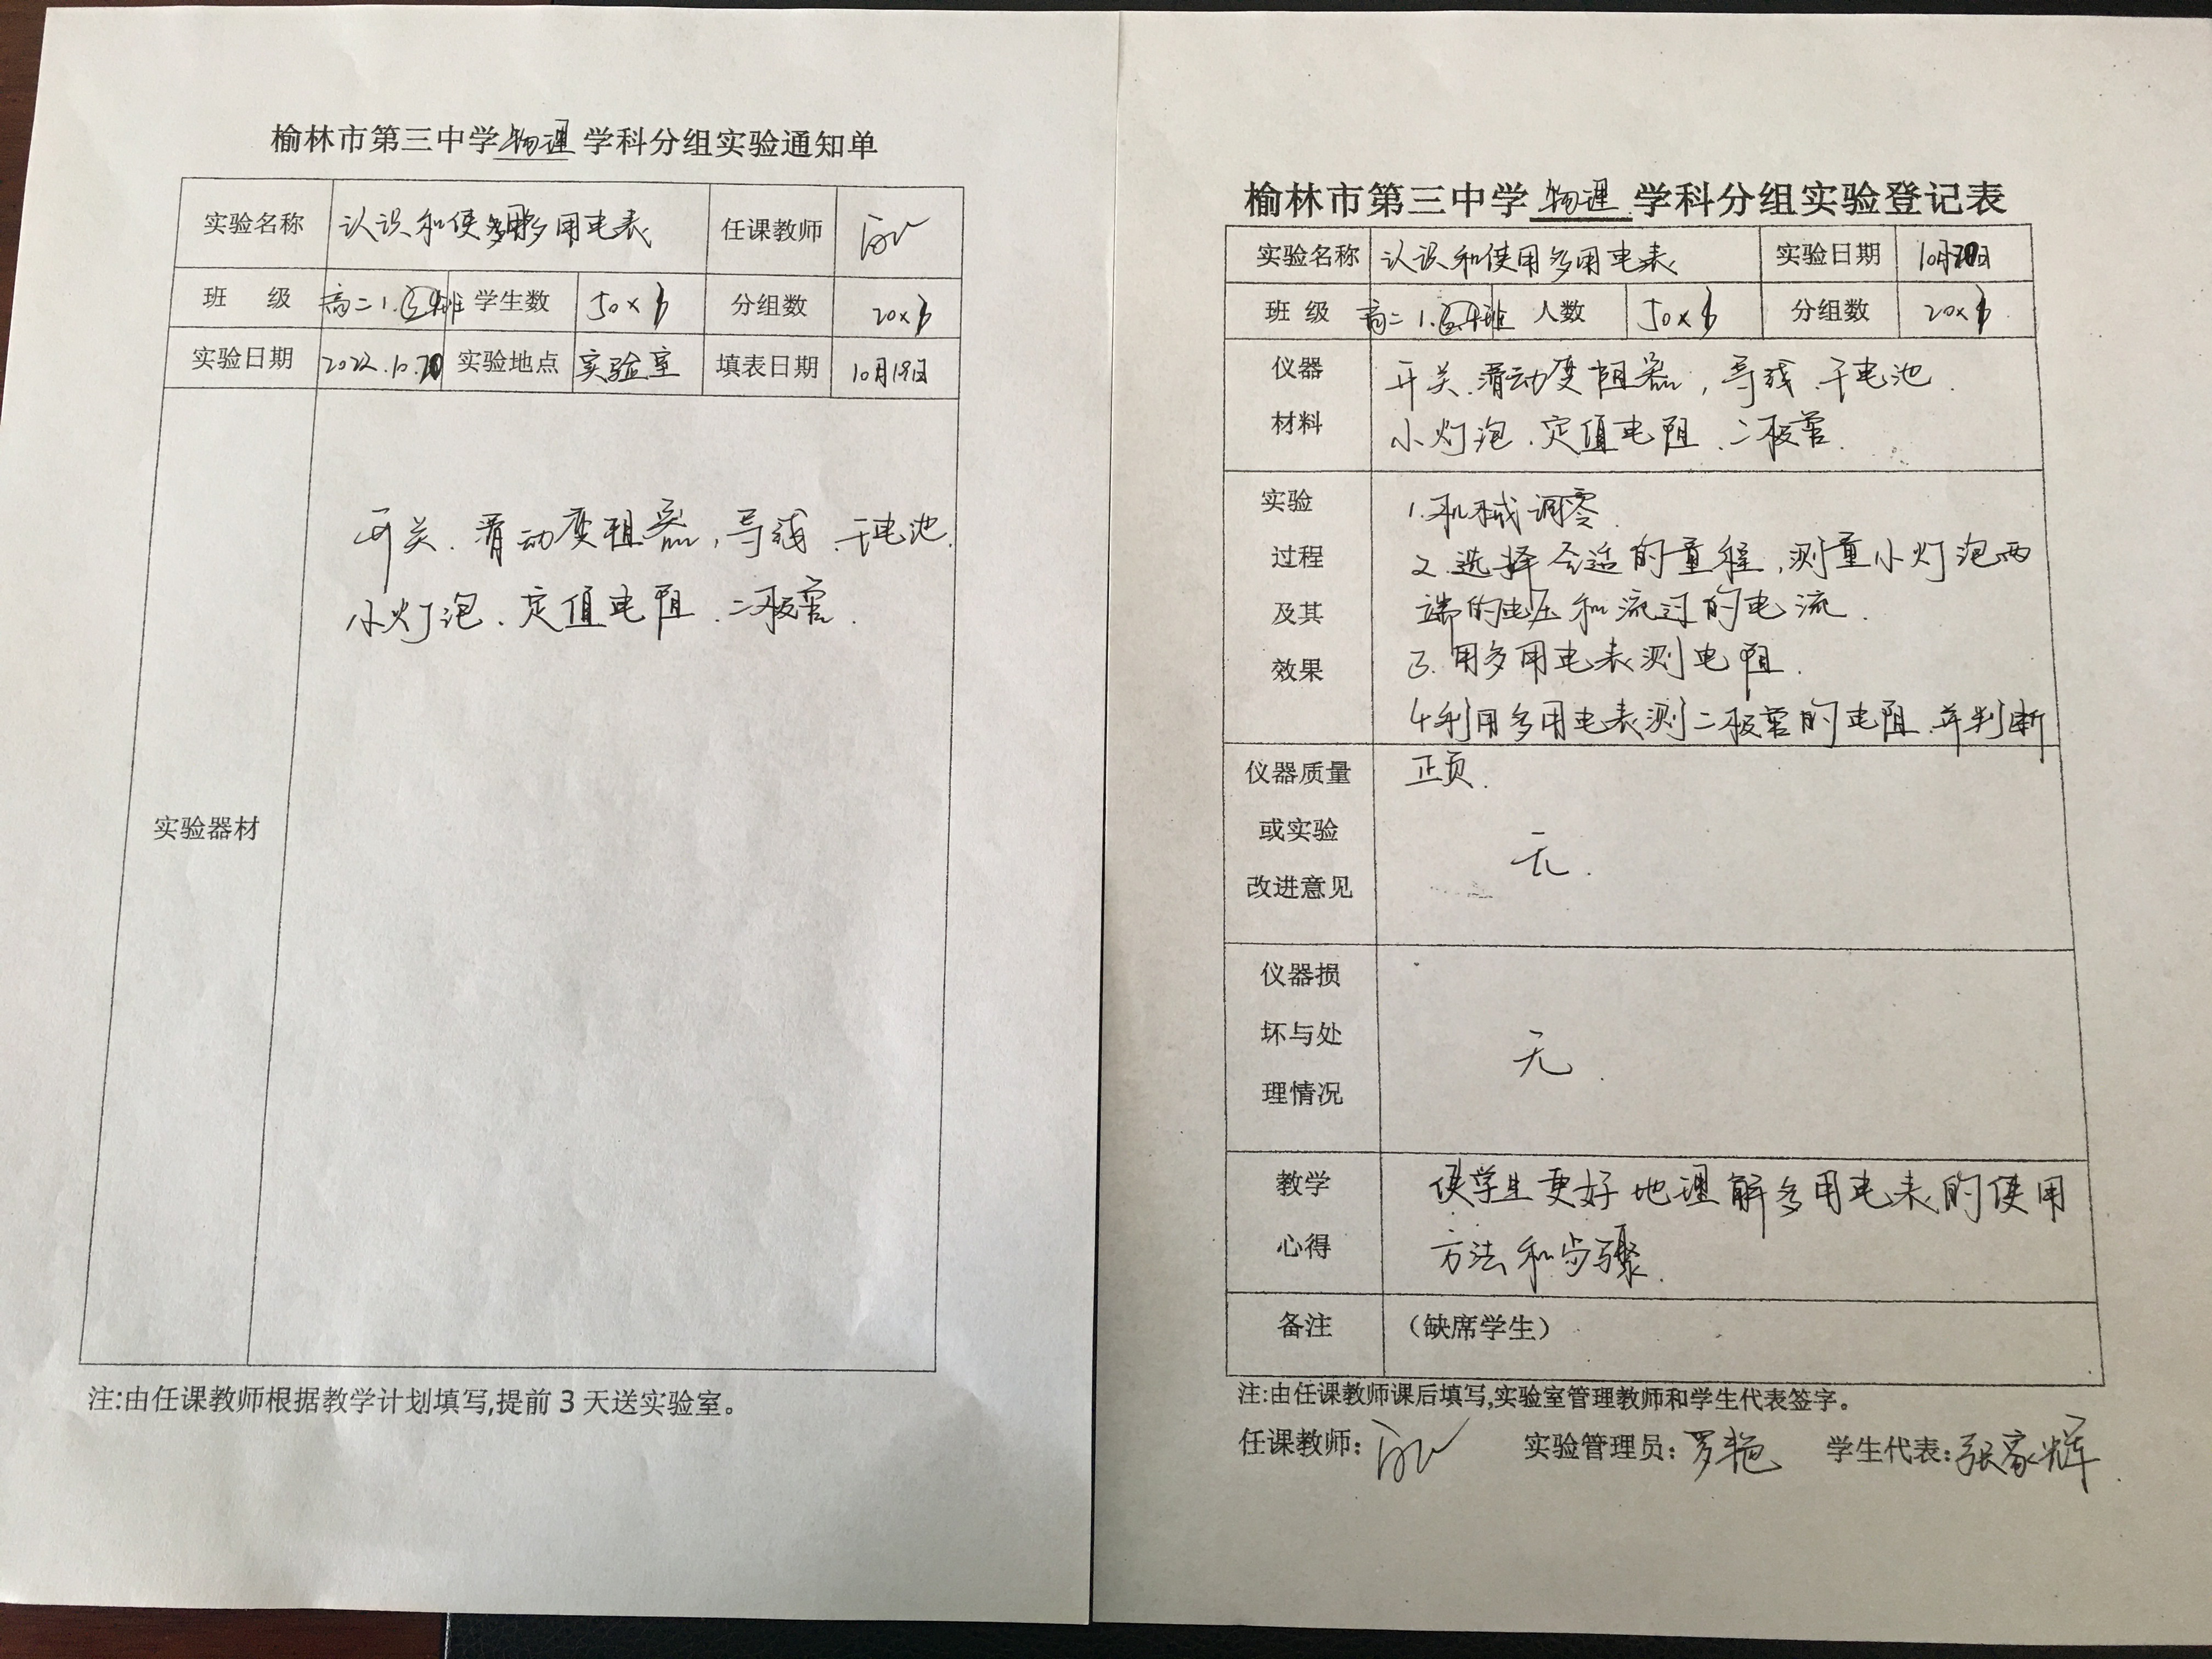 榆林市第三中学物理学科分组实验通知单
实验名称 认识和使用多用电表 任课教师
班 级 高二1. 班 学生数 50× 分组数 20×
实验日期 2022.10.20 实验地点 实验室 填表日期 10月19日
实验器材
开关.滑动变阻器,导线.干电池.
小灯泡.定值电阻.二极管.
注:由任课教师根据教学计划填写,提前3天送实验室。
榆林市第三中学物理学科分组实验登记表
实验名称 认识和使用多用电表 实验日期 10月20日
班 级 高二1. 班 人数 50× 分组数 20×
仪器
材料
开关.滑动变阻器,导线.干电池.
小灯泡.定值电阻.二极管.
实验
过程
及其
效果
1.机械调零.
2.选择合适的量程,测量小灯泡两
端的电压和流过的电流.
3.用多用电表测电阻.
4.利用多用电表测二极管的电阻.并判断
正负.
仪器质量
或实验
改进意见
无.
仪器损
坏与处
理情况
无.
教学
心得
使学生更好地理解多用电表的使用
方法和步骤.
备注 (缺席学生)
注:由任课教师课后填写,实验室管理教师和学生代表签字。
任课教师: 实验管理员:罗艳 学生代表:张家辉.